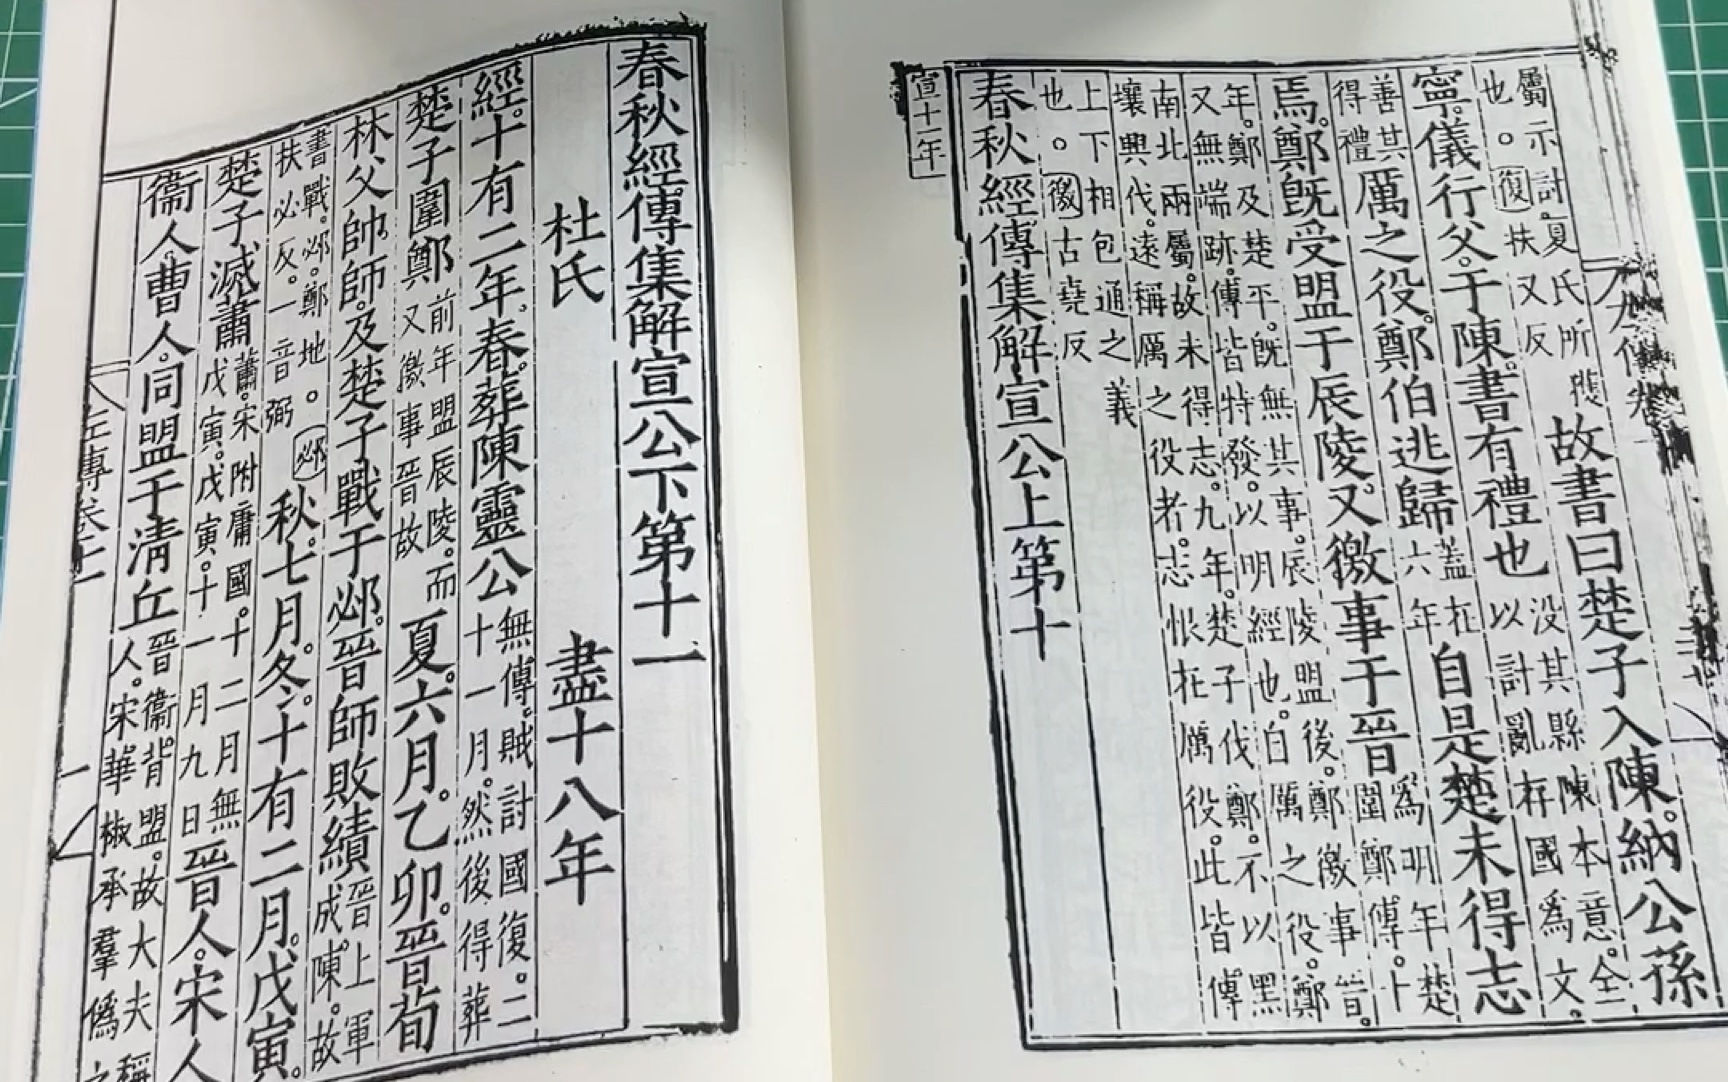 屬示計夏氏所
也。復扶又反
故書曰楚子入陳。納公孫
寧。儀行父。于陳。書有禮也
没其縣陳本意。全
以討亂存國為文。
善其
得禮
厲之役。鄭伯逃歸
蓋在
六年
自是楚未得志
焉。鄭既受盟于辰陵。又徼事于晉
為明年楚
圍鄭傳。十
年。鄭及楚平。既無其事。辰陵盟後。鄭徼事晉。
又無端跡。傳皆特發。以明經也。自厲之役。鄭
南北兩屬。故未得志。九年。楚子伐鄭。不以黑
壤興伐。遠稱厲之役者。志恨在厲役。此皆傳
上下相包通之義
也。徼古堯反
春秋經傳集解宣公上第十
宣十一年
春秋經傳集解宣公下第十一
杜氏 盡十八年
經。十有二年。春。葬陳靈公
無傳。賊討國復。二
十一月。然後得葬
楚子圍鄭
前年盟辰陵。而
又徼事晉故
夏。六月。乙卯。晉荀
林父帥師。及楚子戰于邲。晉師敗績
晉上軍
成陳。故
書戰。邲。鄭地。邲
扶必反。一音弼
秋。七月。冬。十有二月。戊寅。
楚子滅蕭
蕭。宋附庸國。十二月無
戊寅。戊寅。十一月九日
晉人。宋人
衞人。曹人。同盟于清丘
晉衞背盟。故大夫稱
人。宋華椒承羣偽之
左傳卷十一
一